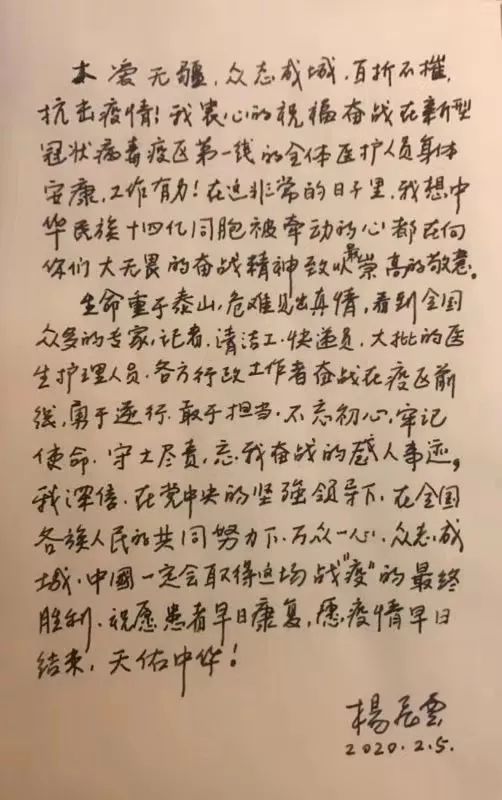 大爱无疆,众志成城,百折不摧,
抗击疫情!我衷心的祝福奋战在新型
冠状病毒疫区第一线的全体医护人员身体
安康,工作有力!在这非常的日子里,我想中
华民族十四亿同胞被牵动的心都在向
你们大无畏的奋战精神致以最崇高的敬意。
生命重于泰山,危难见出真情,看到全国
众多的专家,记者,清洁工,快递员,大批的医
生护理人员,各方行政工作者奋战在疫区前
线,勇于逆行,敢于担当,不忘初心,牢记
使命,守土尽责,忘我奋战的感人事迹。
我深信,在党中央的坚强领导下,在全国
各族人民的共同努力下,万众一心,众志成
城,中國一定会取得这场战"疫"的最终
胜利,祝愿患者早日康复,愿疫情早日
结束,天佑中华!
楊 雲
2020.2.5.